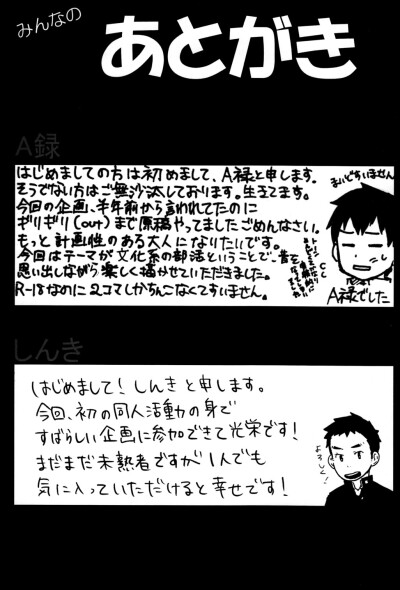 みんなの
あとがき
A録
はじめましての方は初めまして、A禄と申します。
そうでない方はご無沙汰しております。生きてます。
今回の企画、半年前から言われてたのに
ギリギリ(out)まで原稿やってましたごめんなさい。
もっと計画性のある大人になりたいです。
今回はテーマが文化系の部活ということで、昔を
思い出しながら楽しく描かせていただきました。
R-18なのに2コマしかちんこなくてすいません。
まいどすいません
A禄でした
しんき
はじめまして!しんきと申します。
今回、初の同人活動の身で
すばらしい企画に参加できて光栄です!
まだまだ未熟者ですが1人でも
気に入っていただけると幸せです!
よろしく!